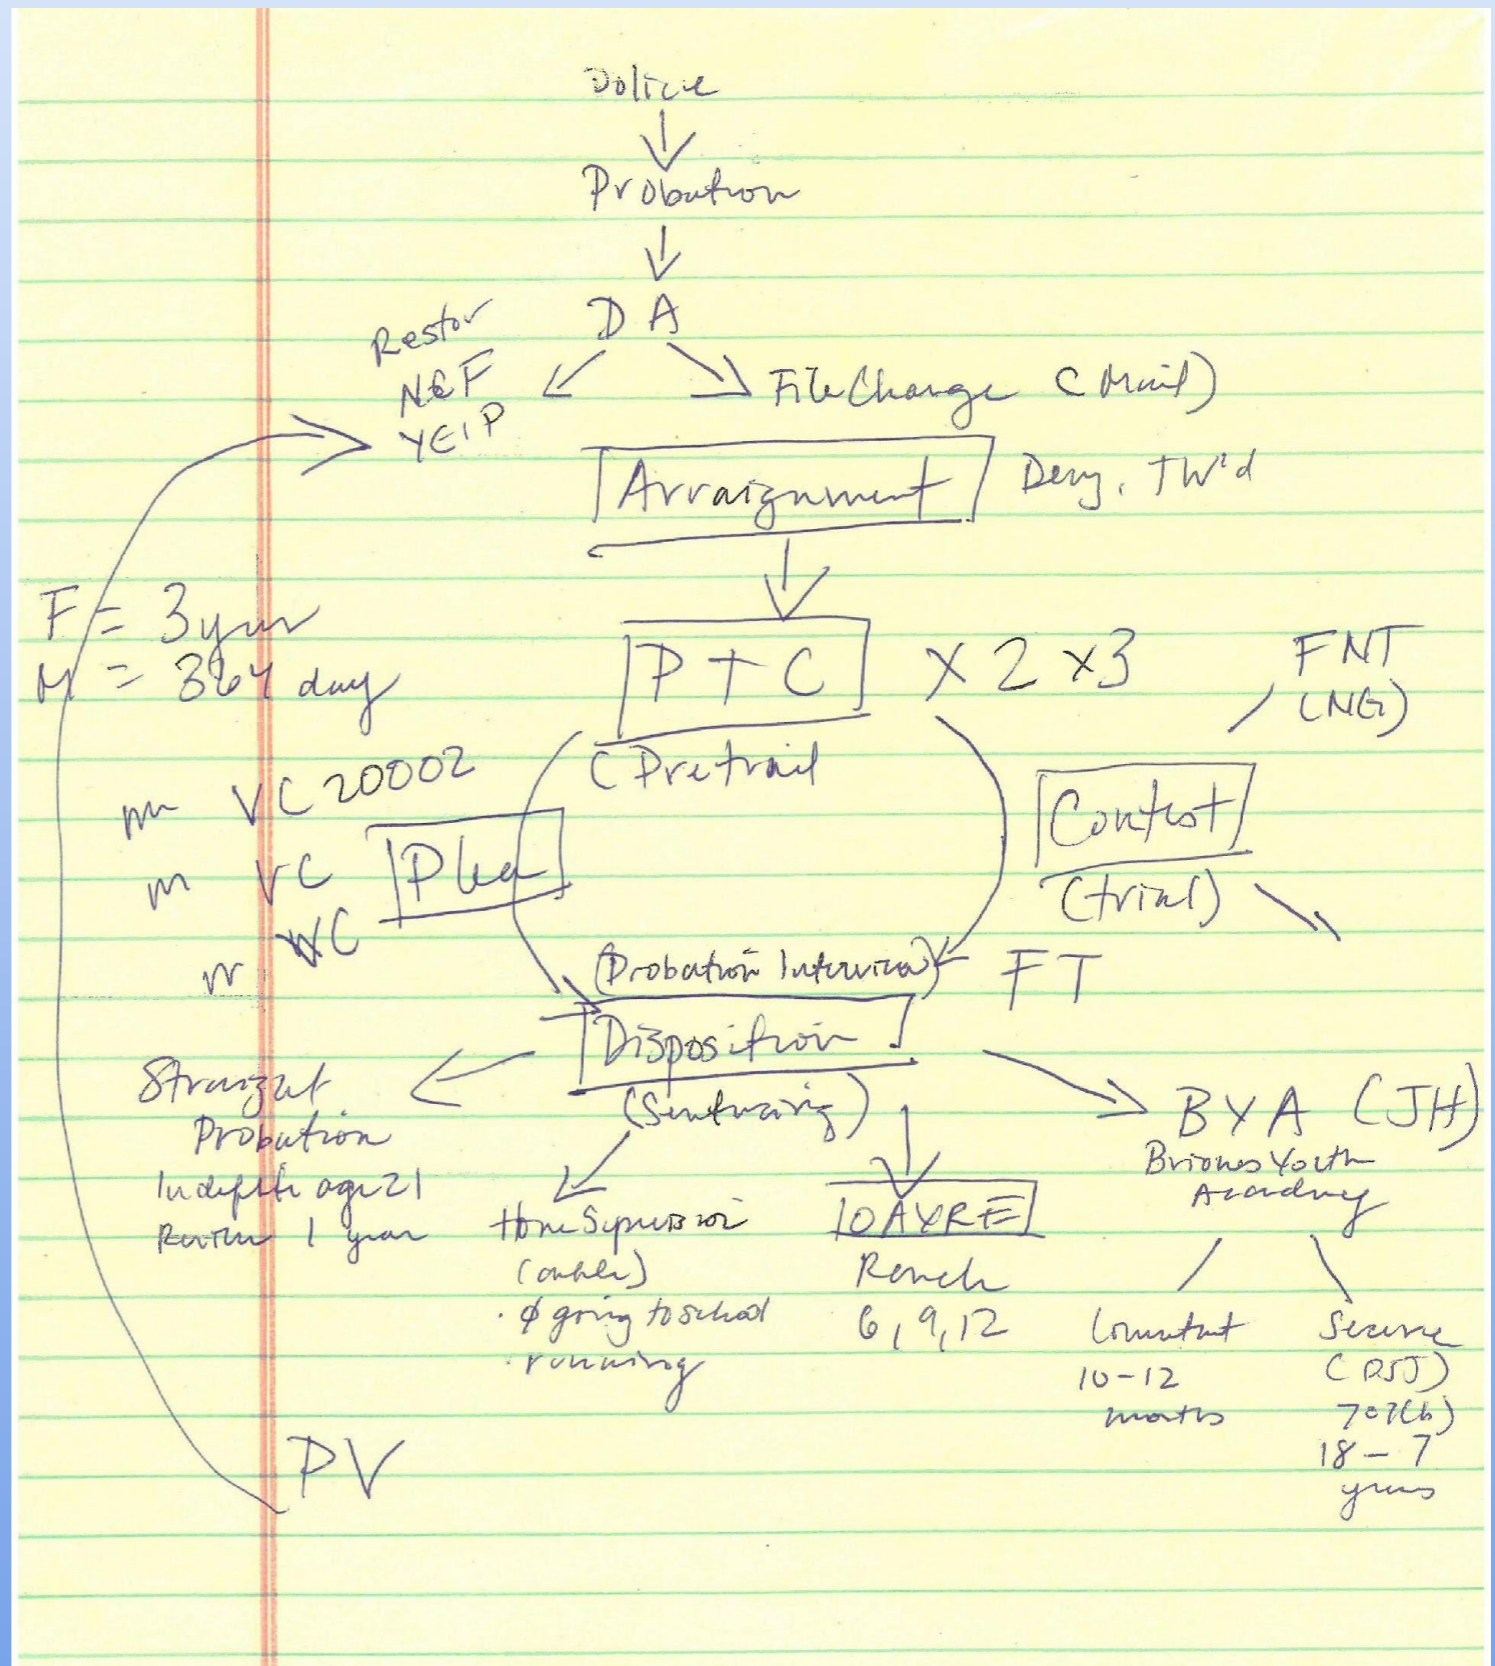 Police
Probation
DA
Restor
NCF
YEIP
File Charge (Mail)
Arraignment
Deny, TW'd
F = 3 year
M = 364 day
PTC x2 x3
(Pretrail
FNT
(NG)
m VC 20002
m VC
m VC
Plea
Contest
(trial)
FT
(Probation Interview)
Disposition
(Sentencing)
Straight
Probation
Indefite age 21
Review 1 year
Home Supervision
(ankle)
· ø going to school
· running
OAYRF
Ranch
6, 9, 12
BYA (JH)
Briones Youth
Academy
10-12
months
Secure
(DJJ)
707(b)
18 - 7
years
PV